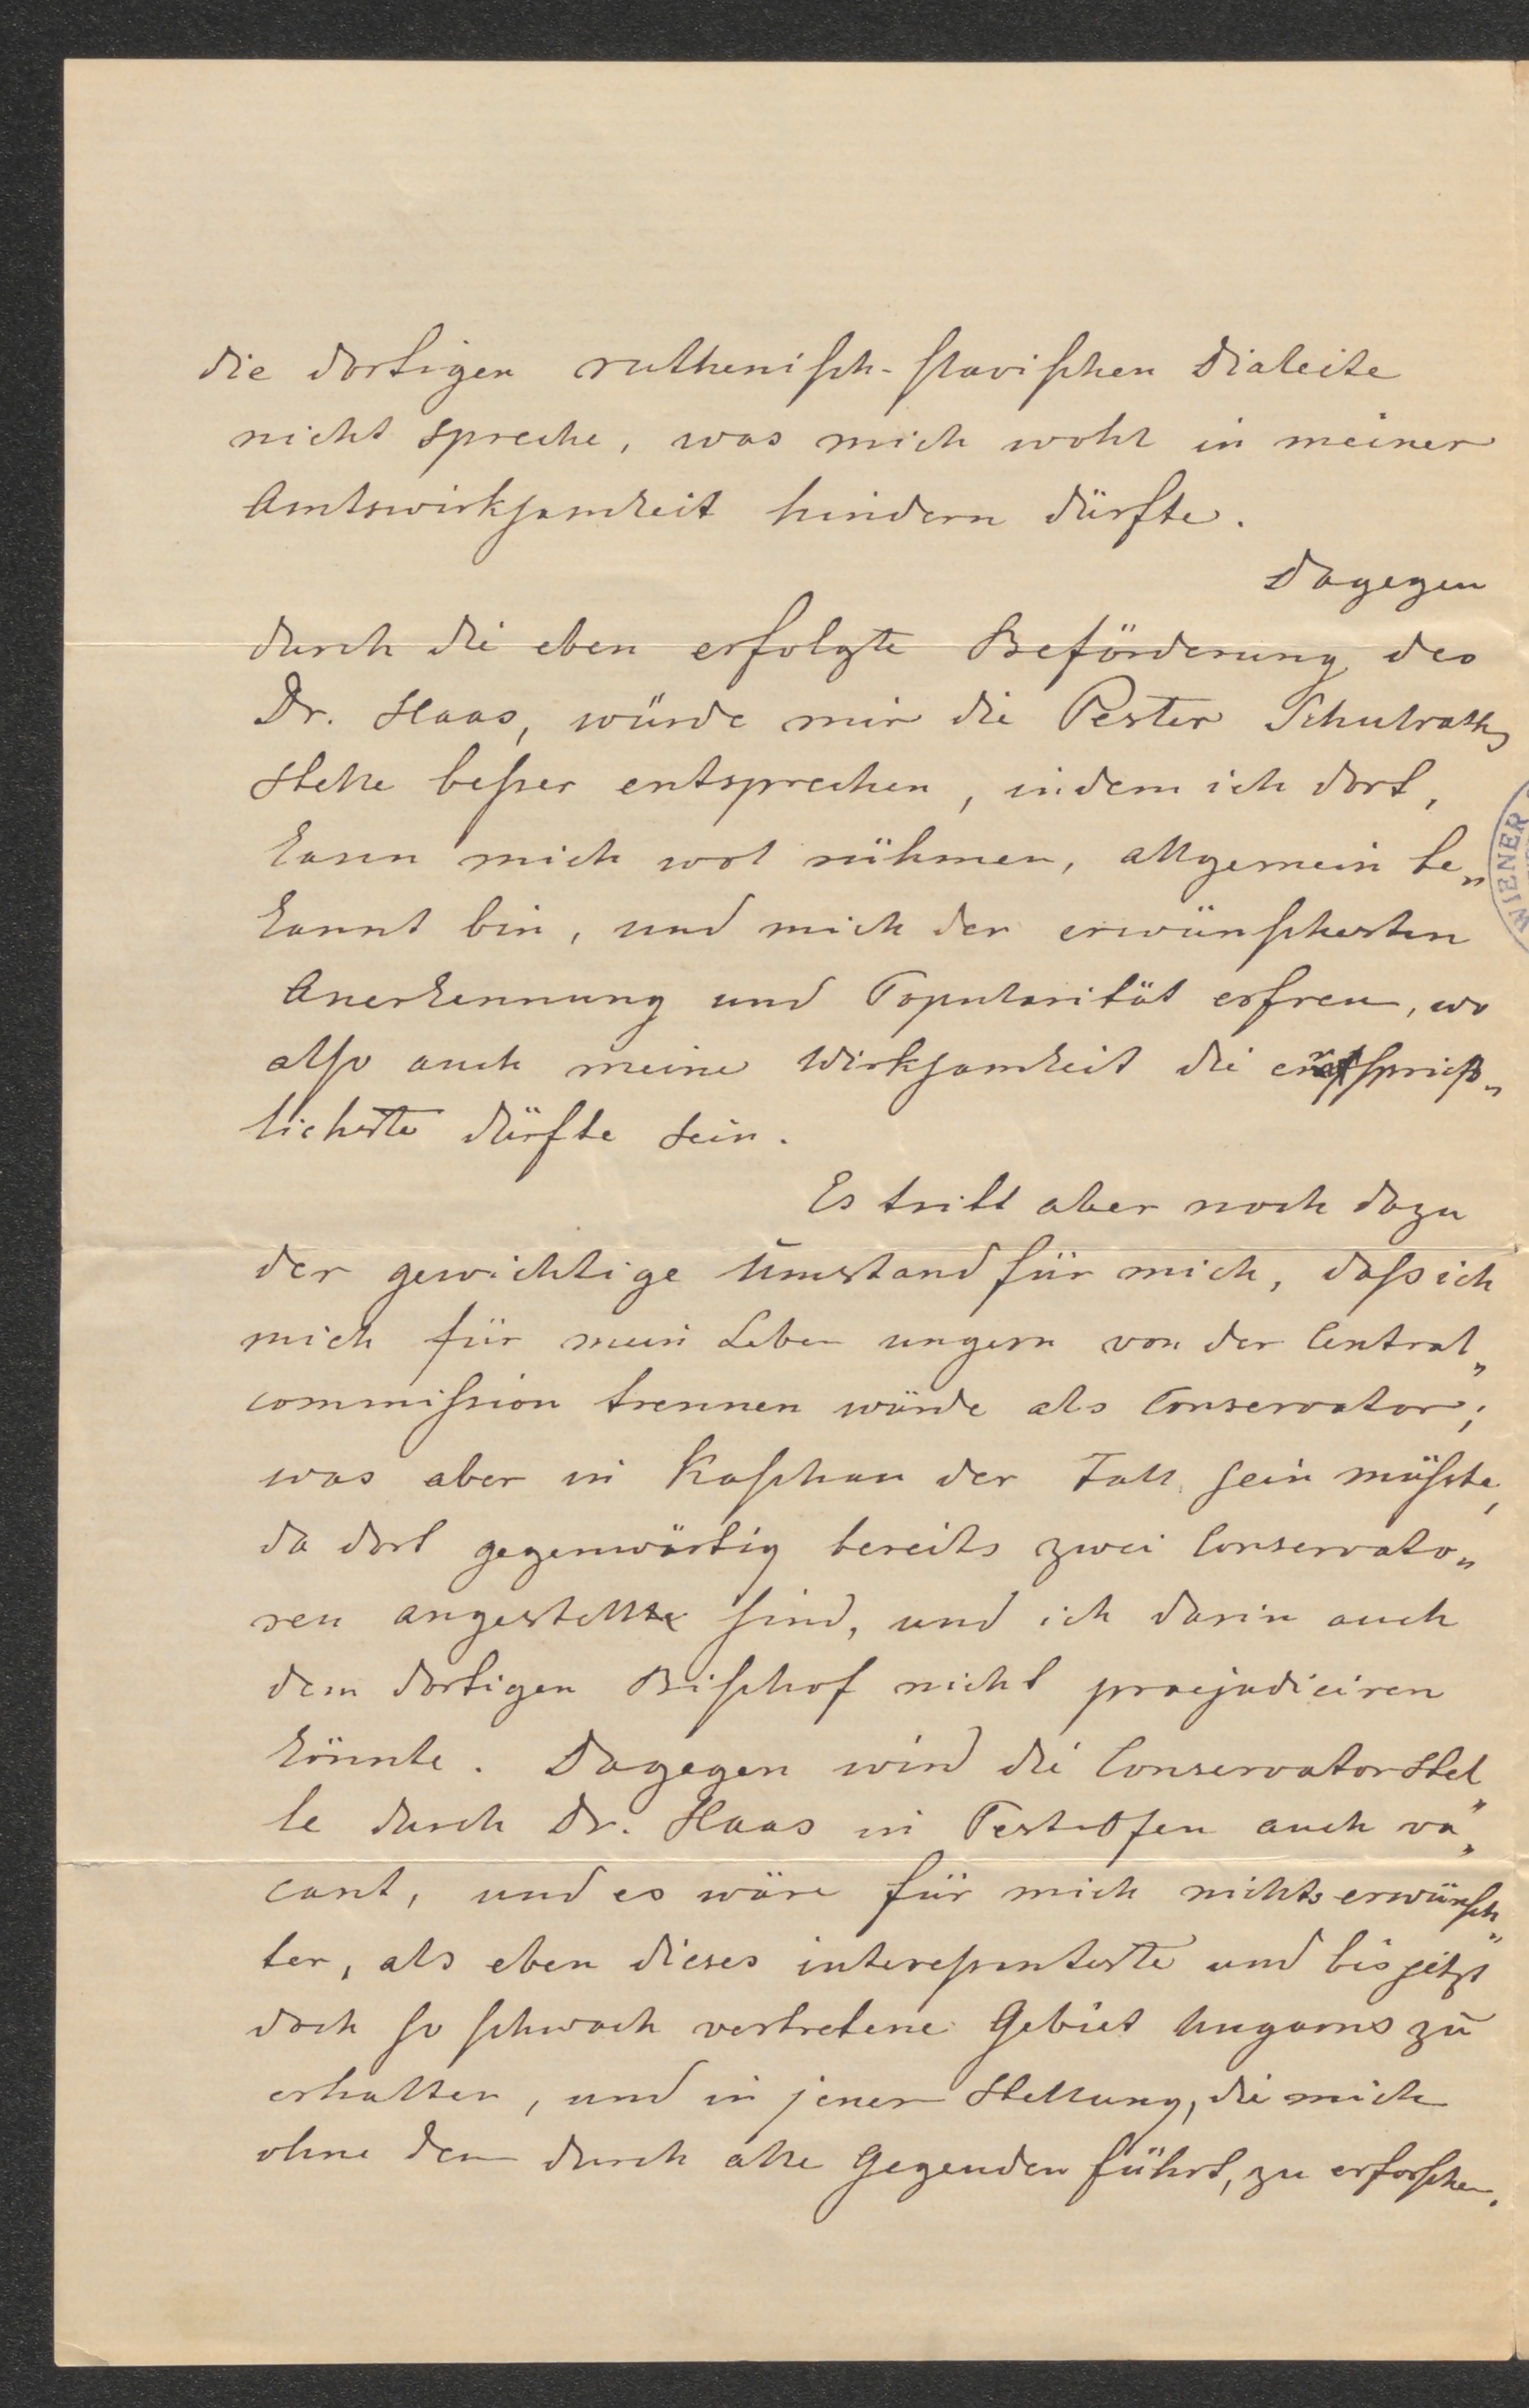 die dortigen ruthenisch-slavischen Dialecte
nicht spreche, was mich wohl in meiner
Amtswirksamkeit hindern dürfte.
Dagegen
durch die eben erfolgte Beförderung des
Dr. Haas, würde mir die Pester Schulraths
stelle beßer entsprechen, indem ich dort,
kann mich wol rühmen, allgemein be„
kannt bin, und mich der erwünschesten
Anerkennung und Popularität erfreu, wo
also auch meine Wirksamkeit die ersprieß„
lichste dürfte sein.
Es tritt aber noch dazu
der gewichtige Umstand für mich, daß ich
mich für mein Leben ungern von der Central„
commißion trennen würde als Conservator;
was aber in Kaschau der Fall sein müßte,
da dort gegenwärtig bereits zwei Conservato„
ren angestellt sind, und ich darin auch
dem dortigen Bischof nicht praejudiciren
könnte. Dagegen wird die Conservatorstel„
le durch Dr. Haas in Pest-Ofen auch va„
cant, und es wäre für mich nichts erwünsch„
ter, als eben dieses intereßanteste und bis jetzt
doch so schwach vertretene Gebiet Ungarns zu
erhalten, und in jener Stellung, die mich
ohne dem durch alle Gegenden führt, zu erforschen.
WIENER